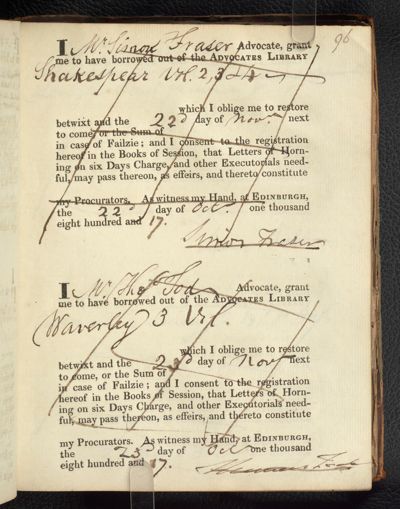 96
I Mr Simon Fraser Advocate, grant
me to have borrowed out of the ADVOCATES LIBRARY
Shakespear Vol. 2, 3
which I oblige me to restore
betwixt and the 22d day of Novr next
to come, or the Sum of
in case of Failzie; and I consent to the registration
hereof in the Books of Session, that Letters of Horn-
ing on six Days Charge, and other Executorials need-
ful, may pass thereon, as effeirs, and thereto constitute
my Procurators. As witness my Hand, at EDINBURGH,
the 22d day of Octr. one thousand
eight hundred and 17.
Simon Fraser
I Mr Thos Tod Advocate, grant
me to have borrowed out of the ADVOCATES LIBRARY
Waverley 3 Vol.
which I oblige me to restore
betwixt and the 23d day of Novr next
to come, or the Sum of
in case of Failzie; and I consent to the registration
hereof in the Books of Session, that Letters of Horn-
ing on six Days Charge, and other Executorials need-
ful, may pass thereon, as effeirs, and thereto constitute
my Procurators. As witness my Hand, at EDINBURGH,
the 23d day of Octr one thousand
eight hundred and 17.
Thomas Tod